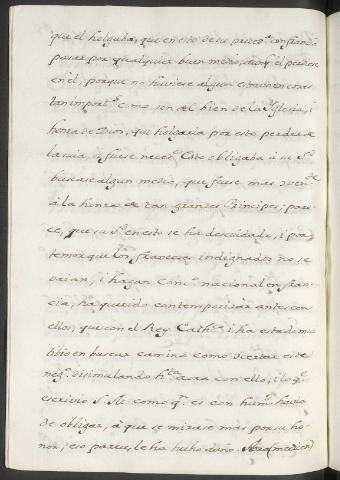 que el holgaba, que en esto de su preced.ª confiando
pasar por qualquier buen medio, aunq̃ el perdiese
en el, porque no huviese algun estorvo en cosas
tan import.s como son al bien de la Iglesia, i
honra de Dios, que holgaria por esto perder de
la suia, si fuese neces.º Esto obligaba à su S.d
buscase algun medio, que fuese mas
à la honra de tan grandes Principes; pare-
ce, que su S.d en esto se ha descuidado, i por
temor que los franceses indignados no se
vaian, i hagan Conc.º nacional en fran-
cia, ha querido contemporizar antes con
ellos, que con el Rey Cath.co i ha estado mui
tibio en buscar camino como acertar este
neg.º disimulando h.ta aora con ello, i lo q.e
escrivio S. M. como q.e es con hum.d havia
de obligar, à que se mirase mas por su ho-
nor, eso parece, le ha hecho daño.